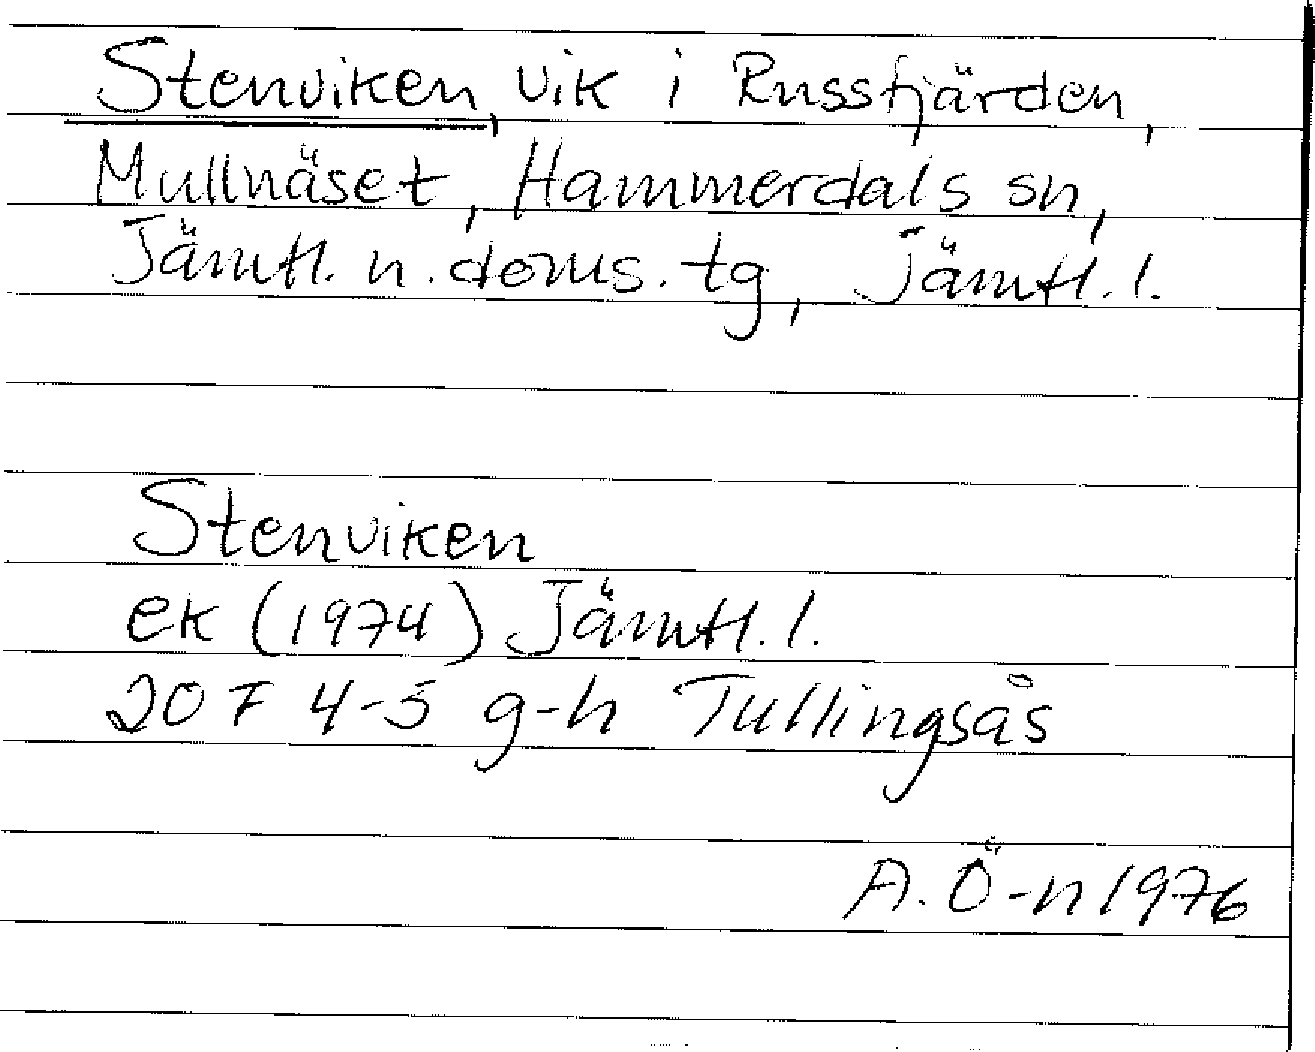 Stenviken, vik i Russfjärden,
Mullnäset, Hammerdals sn,
Jämtl. n. doms. tg, Jämtl. l.
Stenviken
ek (1974) Jämtl. l.
20 F 4-5 g-h Tullingsås
A. Ö-n 1976